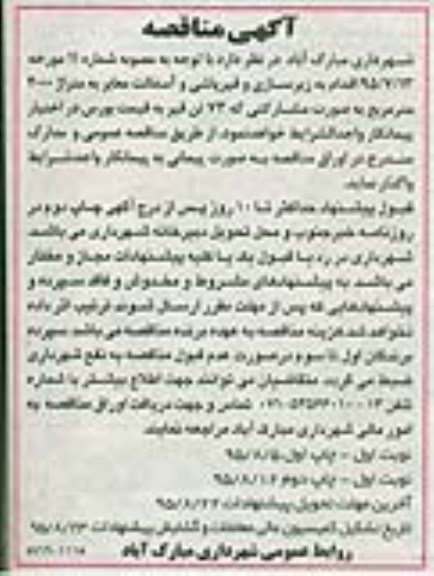 آگهی مناقصه
شهرداری مبارک آباد در نظر دارد با توجه به مصوبه شماره ۱۱ مورخه
۹۵/۷/۱۳ اقدام به زیرسازی و قیرپاشی و آسفالت معابر به متراژ
مترمربع به صورت مشارکتی که ۷۳ تن قیر به قیمت بورس در اختیار
پیمانکار واجدالشرایط خواهد نمود. از طریق مناقصه عمومی و مدارک
مندرج در اوراق مناقصه به صورت پیمانی به پیمانکار واجدشرایط
واگذار نماید.
قبول پیشنهاد حداکثر تا ۱۰ روز پس از درج آگهی چاپ دوم در
روزنامه خبرجنوب و محل تحویل دبیرخانه شهرداری می باشد.
شهرداری در رد یا قبول یک یا کلیه پیشنهادات مجاز و مختار
می باشد. به پیشنهادهای مشروط و مخدوش و فاقد سپرده و
پیشنهادهایی که پس از مهلت مقرر ارسال شوند ترتیب اثر داده
نخواهد شد. هزینه مناقصه به عهده برنده مناقصه می باشد. سپرده
برندگان اول تا سوم درصورت عدم قبول مناقصه به نفع شهرداری
ضبط می گردد. متقاضیان می توانند جهت اطلاع بیشتر با شماره
تلفن تماس و جهت دریافت اوراق مناقصه به
امور مالی شهرداری مبارک آباد مراجعه نمایند.
نوبت اول - چاپ اول ۹۵/۸/۵
نوبت اول - چاپ دوم ۹۵/۸/۱۲
آخرین مهلت تحویل پیشنهادات ۹۵/۸/۲۲
تاریخ تشکیل کمیسیون عالی معاملات و گشایش پیشنهادات ۹۵/۸/۲۳
روابط عمومی شهرداری مبارک آباد